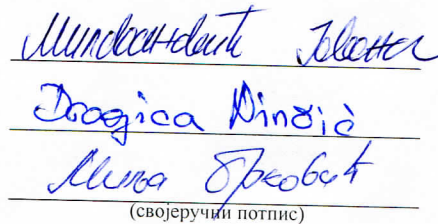 Миловановић Јована
Dragica Dinčić
Миља Брковић
(својеручни потпис)